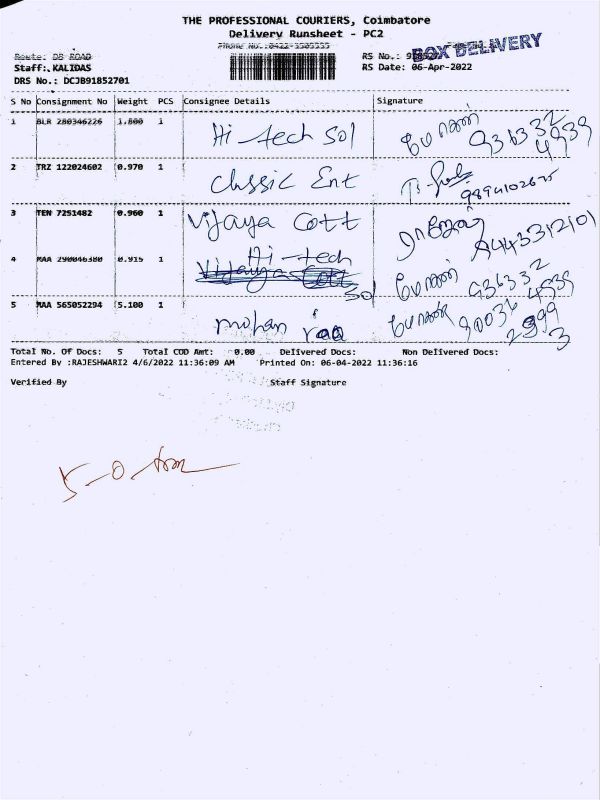 THE PROFESSIONAL COURIERS, Coimbatore
Delivery Runsheet - PC2
Phone No.:0422-3505555
BOX DELIVERY
Route: DB ROAD
RS No.:
Staff: KALIDAS
RS Date: 06-Apr-2022
DRS No.: DCJB91852701
S No Consignment No Weight PCS Consignee Details Signature
1 BLR 280346226 1.800 1 Hi-tech Sol மோகன் 936332
4939
2 TRZ 122024602 0.970 1 Classic Ent
3 TEN 7251482 0.960 1 Vijaya Cott
4 MAA 290046380 0.915 1 Hi-tech
Sol மோகன் 936332
4939
5 MAA 565052294 5.100 1 mohan மோகன் 90036
Total No. Of Docs: 5 Total COD Amt: 0.00 Delivered Docs: Non Delivered Docs:
Entered By :RAJESHWARI2 4/6/2022 11:36:09 AM Printed On: 06-04-2022 11:36:16
Verified By Staff Signature
5-0-